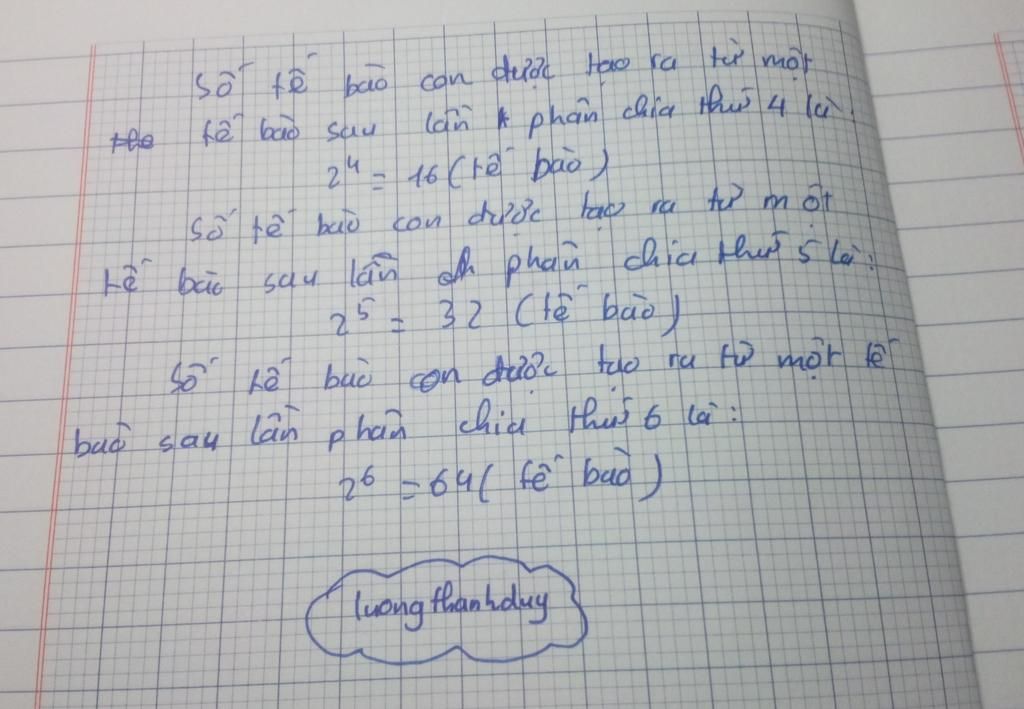 Số tế bào con được tạo ra từ một
tế bào sau lần phân chia thứ 4 là:
2⁴ = 16 (tế bào)
Số tế bào con được tạo ra từ một
tế bào sau lần phân chia thứ 5 là:
2⁵ = 32 (tế bào)
Số tế bào con được tạo ra từ một tế
bào sau lần phân chia thứ 6 là:
2⁶ = 64 (tế bào)
luongthanhduy